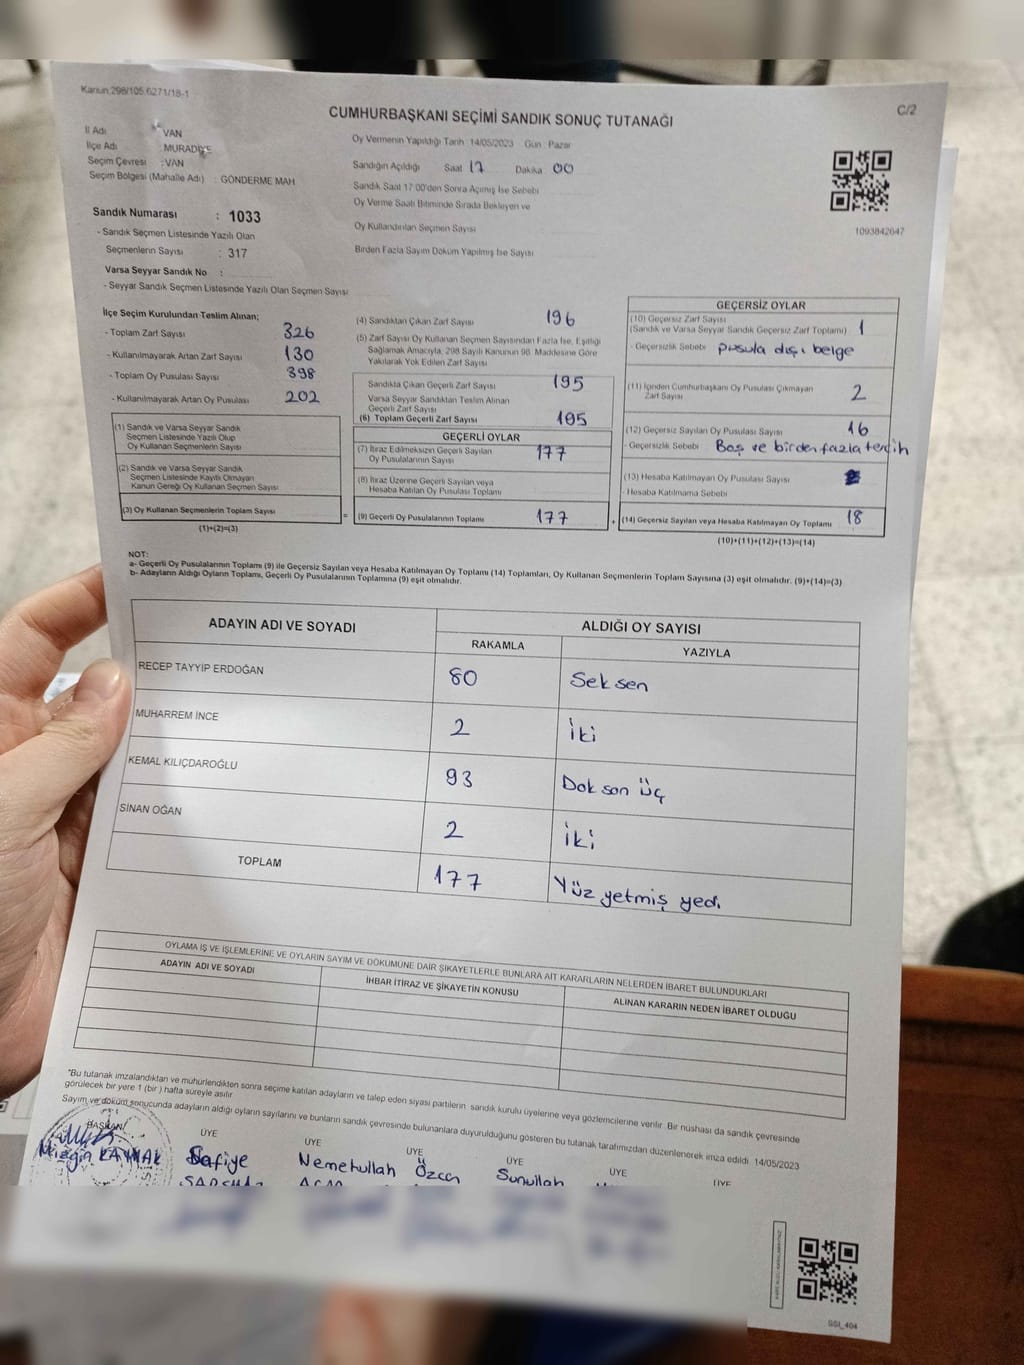 Kanun:298/105,6271/18-1
C/2
CUMHURBAŞKANI SEÇİMİ SANDIK SONUÇ TUTANAĞI
İl Adı : VAN
İlçe Adı : MURADİYE
Seçim Çevresi : VAN
Seçim Bölgesi (Mahalle Adı) : GÖNDERME MAH
Sandık Numarası : 1033
- Sandık Seçmen Listesinde Yazılı Olan
Seçmenlerin Sayısı : 317
Varsa Seyyar Sandık No :
- Seyyar Sandık Seçmen Listesinde Yazılı Olan Seçmen Sayısı:
Oy Vermenin Yapıldığı Tarih 14/05/2023 Gün : Pazar
Sandığın Açıldığı Saat 17 Dakika 00
Sandık Saat 17:00'den Sonra Açımış İse Sebebi
Oy Verme Saati Bitiminde Sırada Bekleyen ve
Oy Kullandırılan Seçmen Sayısı
Birden Fazla Sayım Döküm Yapılmış İse Sayısı
1093842647
İlçe Seçim Kurulundan Teslim Alınan;
- Toplam Zarf Sayısı 326
- Kullanılmayarak Artan Zarf Sayısı 130
- Toplam Oy Pusulası Sayısı 398
- Kullanılmayarak Artan Oy Pusulası 202
(1) Sandık ve Varsa Seyyar Sandık
Seçmen Listesinde Yazılı Olup
Oy Kullanan Seçmenlerin Sayısı
(2) Sandık ve Varsa Seyyar Sandık
Seçmen Listesinde Kayıtlı Olmayan
Kanun Gereği Oy Kullanan Seçmen Sayısı
(3) Oy Kullanan Seçmenlerin Toplam Sayısı
(1)+(2)=(3)
(4) Sandıktan Çıkan Zarf Sayısı 196
(5) Zarf Sayısı Oy Kullanan Seçmen Sayısından Fazla İse, Eşitliği
Sağlamak Amacıyla, 298 Sayılı Kanunun 98. Maddesine Göre
Yakılarak Yok Edilen Zarf Sayısı
Sandıkta Çıkan Geçerli Zarf Sayısı 195
Varsa Seyyar Sandıktan Teslim Alınan
Geçerli Zarf Sayısı
(6) Toplam Geçerli Zarf Sayısı 195
GEÇERLİ OYLAR
(7) İtiraz Edilmeksizin Geçerli Sayılan
Oy Pusulalarının Sayısı 177
(8) İtiraz Üzerine Geçerli Sayılan veya
Hesaba Katılan Oy Pusulası Toplamı
= (9) Geçerli Oy Pusulalarının Toplamı 177 +
GEÇERSİZ OYLAR
(10) Geçersiz Zarf Sayısı
(Sandık ve Varsa Seyyar Sandık Geçersiz Zarf Toplamı) : 1
- Geçersizlik Sebebi : pusula dışı belge
(11) İçinden Cumhurbaşkanı Oy Pusulası Çıkmayan
Zarf Sayısı 2
(12) Geçersiz Sayılan Oy Pusulası Sayısı 16
- Geçersizlik Sebebi : Boş ve birden fazla tercih
(13) Hesaba Katılmayan Oy Pusulası Sayısı
- Hesaba Katılmama Sebebi
(14) Geçersiz Sayılan veya Hesaba Katılmayan Oy Toplamı 18
(10)+(11)+(12)+(13)=(14)
NOT:
a- Geçerli Oy Pusulalarının Toplamı (9) ile Geçersiz Sayılan veya Hesaba Katılmayan Oy Toplamı (14) Toplamları, Oy Kullanan Seçmenlerin Toplam Sayısına (3) eşit olmalıdır. (9)+(14)=(3)
b- Adayların Aldığı Oyların Toplamı, Geçerli Oy Pusulalarının Toplamına (9) eşit olmalıdır.
ADAYIN ADI VE SOYADI
ALDIĞI OY SAYISI
RAKAMLA YAZIYLA
RECEP TAYYİP ERDOĞAN 80 Seksen
MUHARREM İNCE 2 İki
KEMAL KILIÇDAROĞLU 93 Dokson üç
SİNAN OĞAN 2 İki
TOPLAM 177 Yüz yetmiş yedi
OYLAMA İŞ VE İŞLEMLERİNE VE OYLARIN SAYIM VE DÖKÜMÜNE DAİR ŞİKAYETLERLE BUNLARA AİT KARARLARIN NELERDEN İBARET BULUNDUKLARI
ADAYIN ADI VE SOYADI İHBAR İTİRAZ VE ŞİKAYETİN KONUSU ALINAN KARARIN NEDEN İBARET OLDUĞU
"Bu tutanak imzalandıktan ve mühürlendikten sonra seçime katılan adayların ve talep eden siyasi partilerin sandık kurulu üyelerine veya gözlemcilerine verilir. Bir nüshası da sandık çevresinde
görülecek bir yere 1 (bir ) hafta süreyle asılır
Sayım ve döküm sonucunda adayların aldığı oyların sayılarını ve bunların sandık çevresinde bulunanlara duyurulduğunu gösteren bu tutanak tarafımızdan düzenlenerek imza edildi. 14/05/2023
BAŞKAN ÜYE ÜYE ÜYE ÜYE ÜYE ÜYE
KAYNAK Safiye Nemetullah Özcan Sunullah
GSI_404